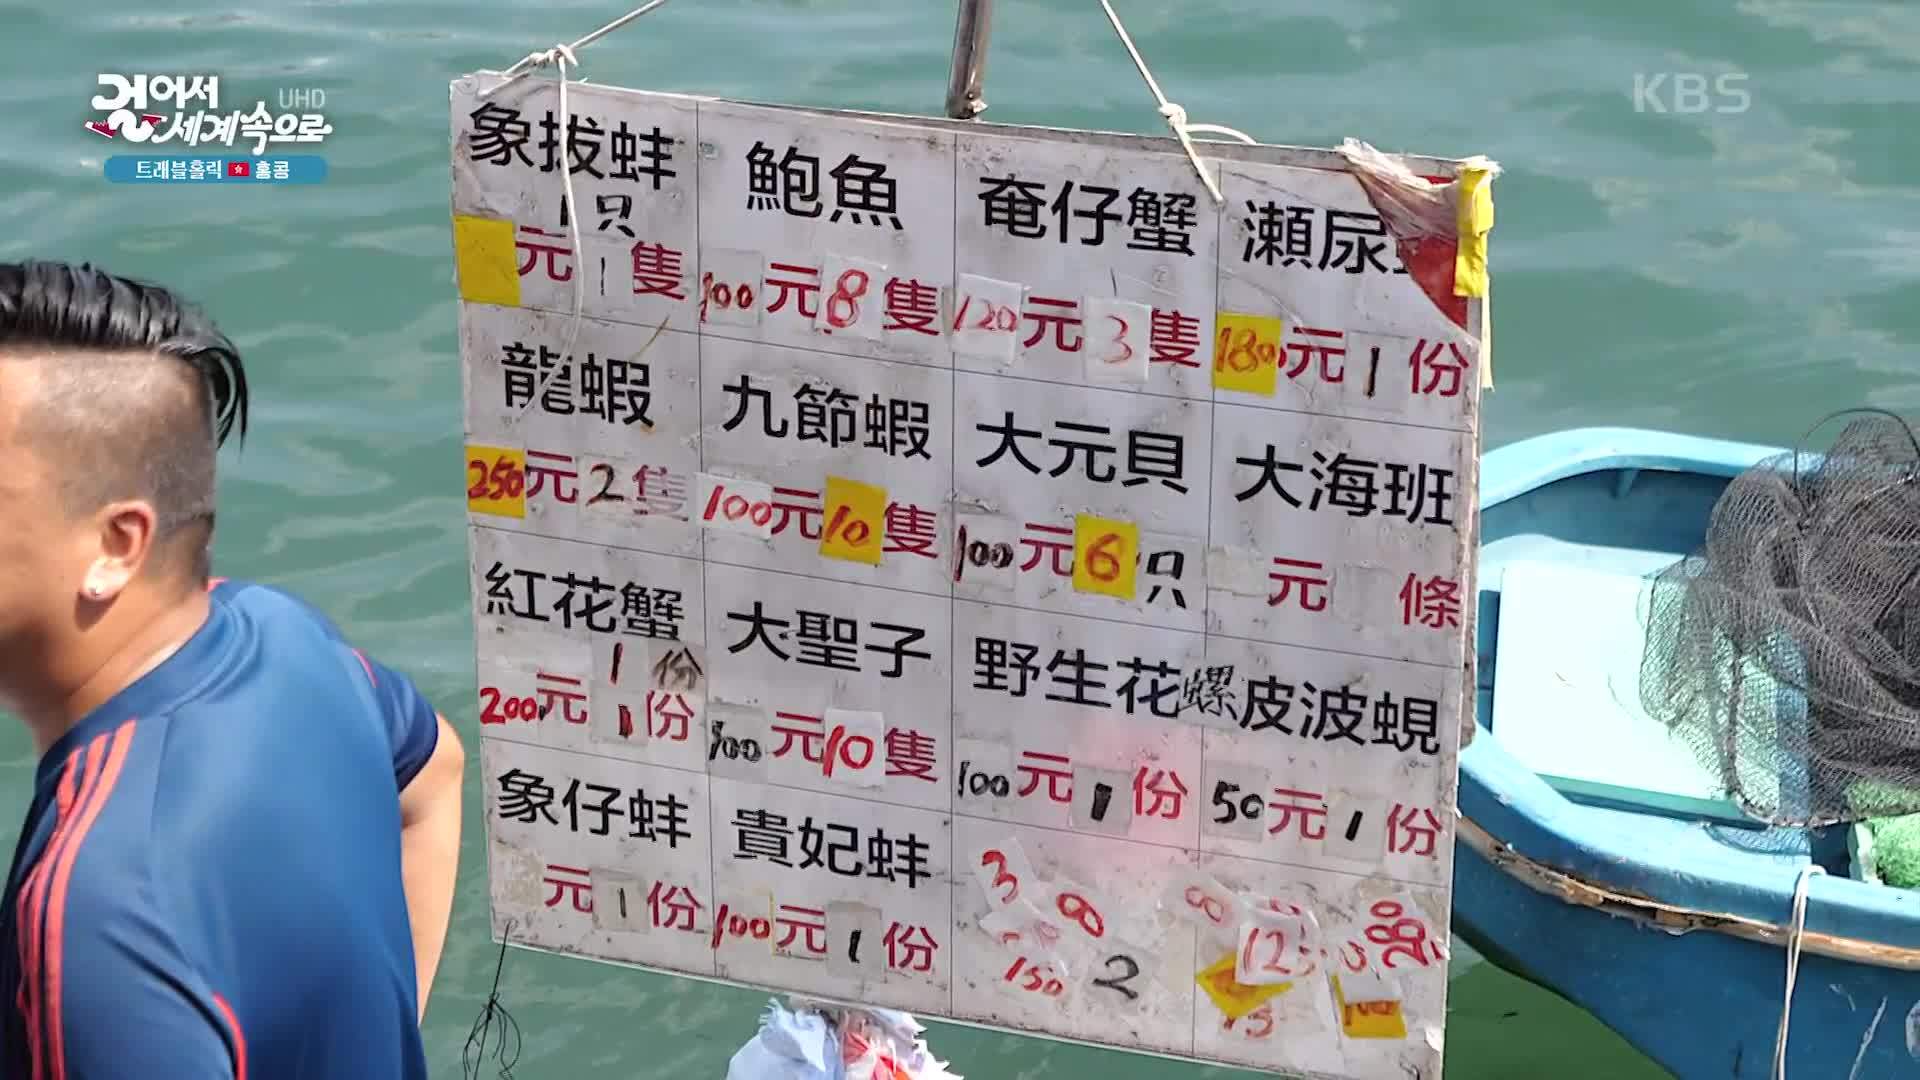 걸어서
세계속으로
UHD
트래블홀릭 홍콩
KBS
象拔蚌
1 只
元 1 隻
鮑魚
100 元 8 隻
奄仔蟹
120 元 3 隻
瀬尿
180 元 1 份
龍蝦
250 元 2 隻
九節蝦
100 元 10 隻
大元貝
100 元 6 只
大海班
元 條
紅花蟹
1 份
200 元 1 份
大聖子
100 元 10 隻
野生花螺
100 元 1 份
皮波蜆
50 元 1 份
象仔蚌
元 1 份
貴妃蚌
100 元 1 份
3
150 2